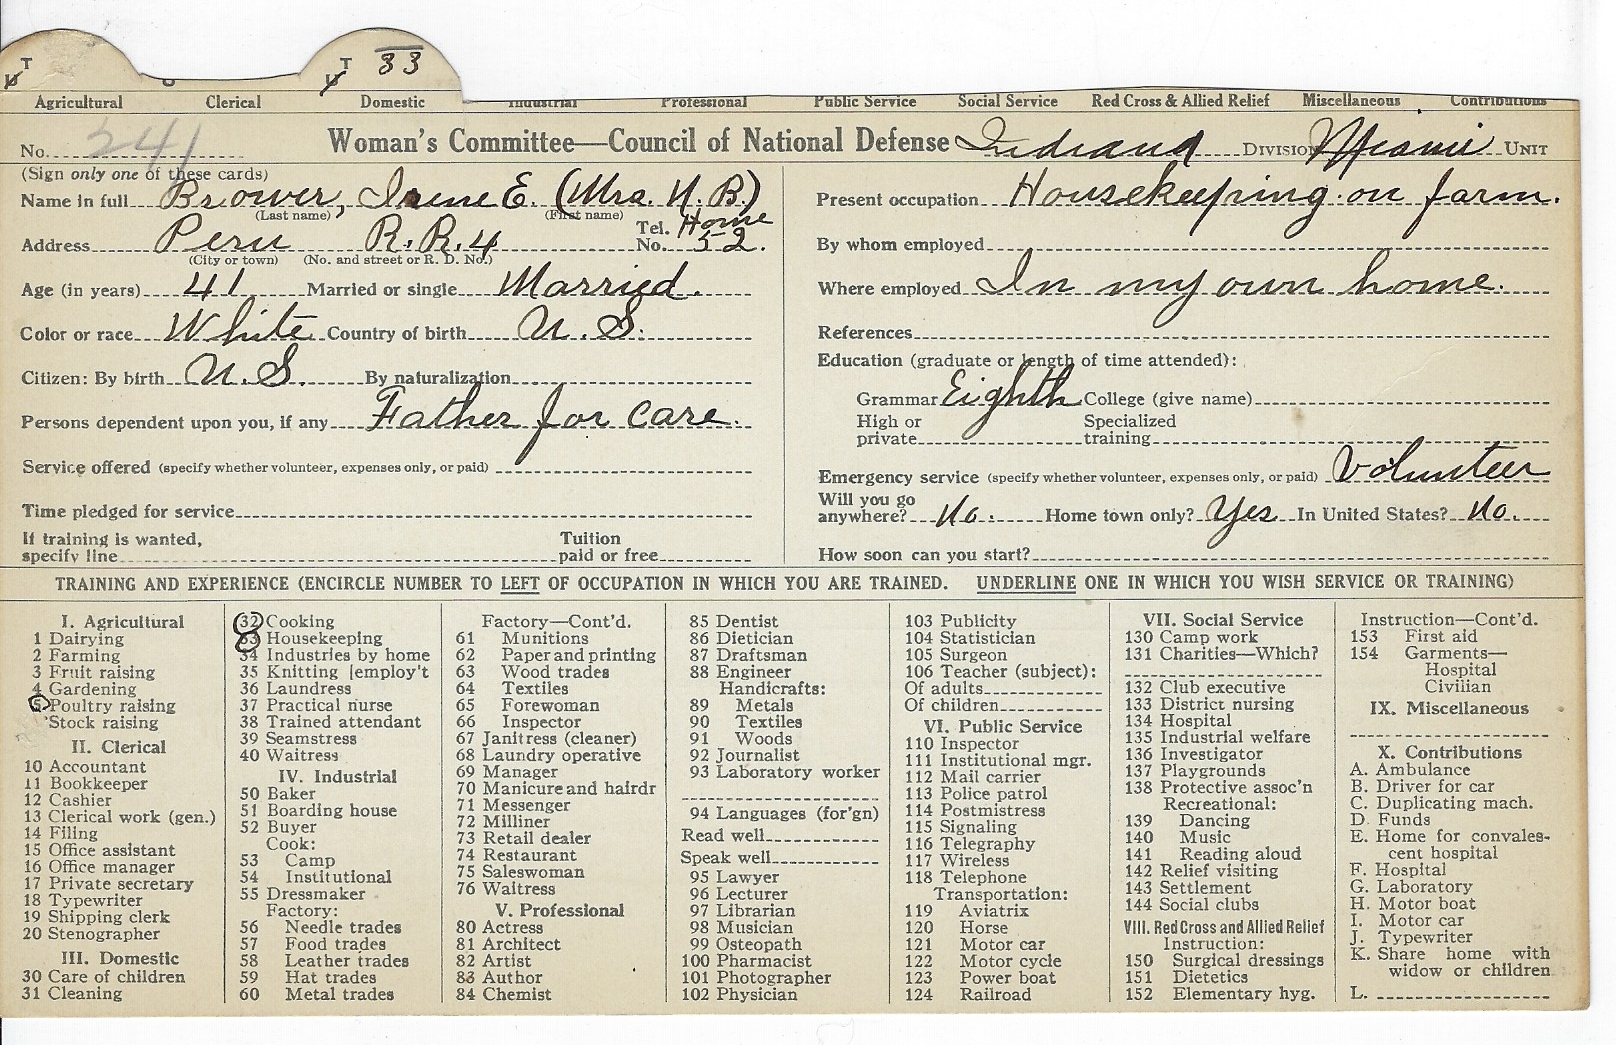 T
T 33
Agricultural Clerical Domestic Industrial Professional Public Service Social Service Red Cross & Allied Relief Miscellaneous Contributions
No. 241 Woman's Committee—Council of National Defense Indiana DIVISION Miami UNIT
(Sign only one of these cards)
Name in full Brower, Irene E. (Mrs. N. B.)
(Last name) (First name)
Address Peru R.R.4 Tel. No. Home 52.
(City or town) (No. and street or R. D. No.)
Age (in years) 41 Married or single Married.
Color or race White Country of birth U.S.
Citizen: By birth U.S. By naturalization
Persons dependent upon you, if any Father for care.
Service offered (specify whether volunteer, expenses only, or paid)
Time pledged for service
If training is wanted, specify line Tuition paid or free
Present occupation Housekeeping on farm.
By whom employed
Where employed In my own home.
References
Education (graduate or length of time attended):
Grammar Eighth College (give name)
High or private Specialized training
Emergency service (specify whether volunteer, expenses only, or paid) Volunteer
Will you go anywhere? No. Home town only? Yes In United States? No.
How soon can you start?
TRAINING AND EXPERIENCE (ENCIRCLE NUMBER TO LEFT OF OCCUPATION IN WHICH YOU ARE TRAINED. UNDERLINE ONE IN WHICH YOU WISH SERVICE OR TRAINING)
I. Agricultural
1 Dairying
2 Farming
3 Fruit raising
4 Gardening
5 Poultry raising
Stock raising
II. Clerical
10 Accountant
11 Bookkeeper
12 Cashier
13 Clerical work (gen.)
14 Filing
15 Office assistant
16 Office manager
17 Private secretary
18 Typewriter
19 Shipping clerk
20 Stenographer
III. Domestic
30 Care of children
31 Cleaning
32 Cooking
33 Housekeeping
34 Industries by home
35 Knitting [employ't
36 Laundress
37 Practical nurse
38 Trained attendant
39 Seamstress
40 Waitress
IV. Industrial
50 Baker
51 Boarding house
52 Buyer
Cook:
53 Camp
54 Institutional
55 Dressmaker
Factory:
56 Needle trades
57 Food trades
58 Leather trades
59 Hat trades
60 Metal trades
Factory—Cont'd.
61 Munitions
62 Paper and printing
63 Wood trades
64 Textiles
65 Forewoman
66 Inspector
67 Janitress (cleaner)
68 Laundry operative
69 Manager
70 Manicure and hairdr
71 Messenger
72 Milliner
73 Retail dealer
74 Restaurant
75 Saleswoman
76 Waitress
V. Professional
80 Actress
81 Architect
82 Artist
83 Author
84 Chemist
85 Dentist
86 Dietician
87 Draftsman
88 Engineer
Handicrafts:
89 Metals
90 Textiles
91 Woods
92 Journalist
93 Laboratory worker
94 Languages (for'gn)
Read well
Speak well
95 Lawyer
96 Lecturer
97 Librarian
98 Musician
99 Osteopath
100 Pharmacist
101 Photographer
102 Physician
103 Publicity
104 Statistician
105 Surgeon
106 Teacher (subject):
Of adults
Of children
VI. Public Service
110 Inspector
111 Institutional mgr.
112 Mail carrier
113 Police patrol
114 Postmistress
115 Signaling
116 Telegraphy
117 Wireless
118 Telephone
Transportation:
119 Aviatrix
120 Horse
121 Motor car
122 Motor cycle
123 Power boat
124 Railroad
VII. Social Service
130 Camp work
131 Charities—Which?
132 Club executive
133 District nursing
134 Hospital
135 Industrial welfare
136 Investigator
137 Playgrounds
138 Protective assoc'n
Recreational:
139 Dancing
140 Music
141 Reading aloud
142 Relief visiting
143 Settlement
144 Social clubs
VIII. Red Cross and Allied Relief
Instruction:
150 Surgical dressings
151 Dietetics
152 Elementary hyg.
Instruction—Cont'd.
153 First aid
154 Garments—
Hospital
Civilian
IX. Miscellaneous
X. Contributions
A. Ambulance
B. Driver for car
C. Duplicating mach.
D. Funds
E. Home for convales-
cent hospital
F. Hospital
G. Laboratory
H. Motor boat
I. Motor car
J. Typewriter
K. Share home with
widow or children
L.